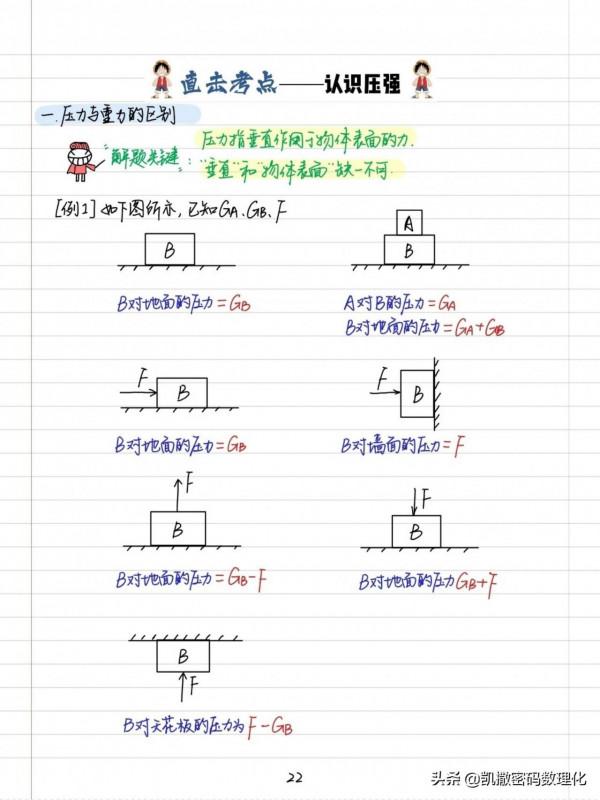 直击考点——认识压强
一.压力与重力的区别
压力指垂直作用于物体表面的力.
"解题关键"：
"垂直"和"物体表面"缺一不可.
[例1]如下图所示,已知GA、GB、F
B
A
B
B对地面的压力=GB
A对B的压力=GA
B对地面的压力=GA+GB
F
B
F
B
B对地面的压力=GB
B对墙面的压力=F
F
B
F
B
B对地面的压力=GB-F
B对地面的压力GB+F
B
F
B对天花板的压力为F-GB
22
头条@凯撒密码数理化